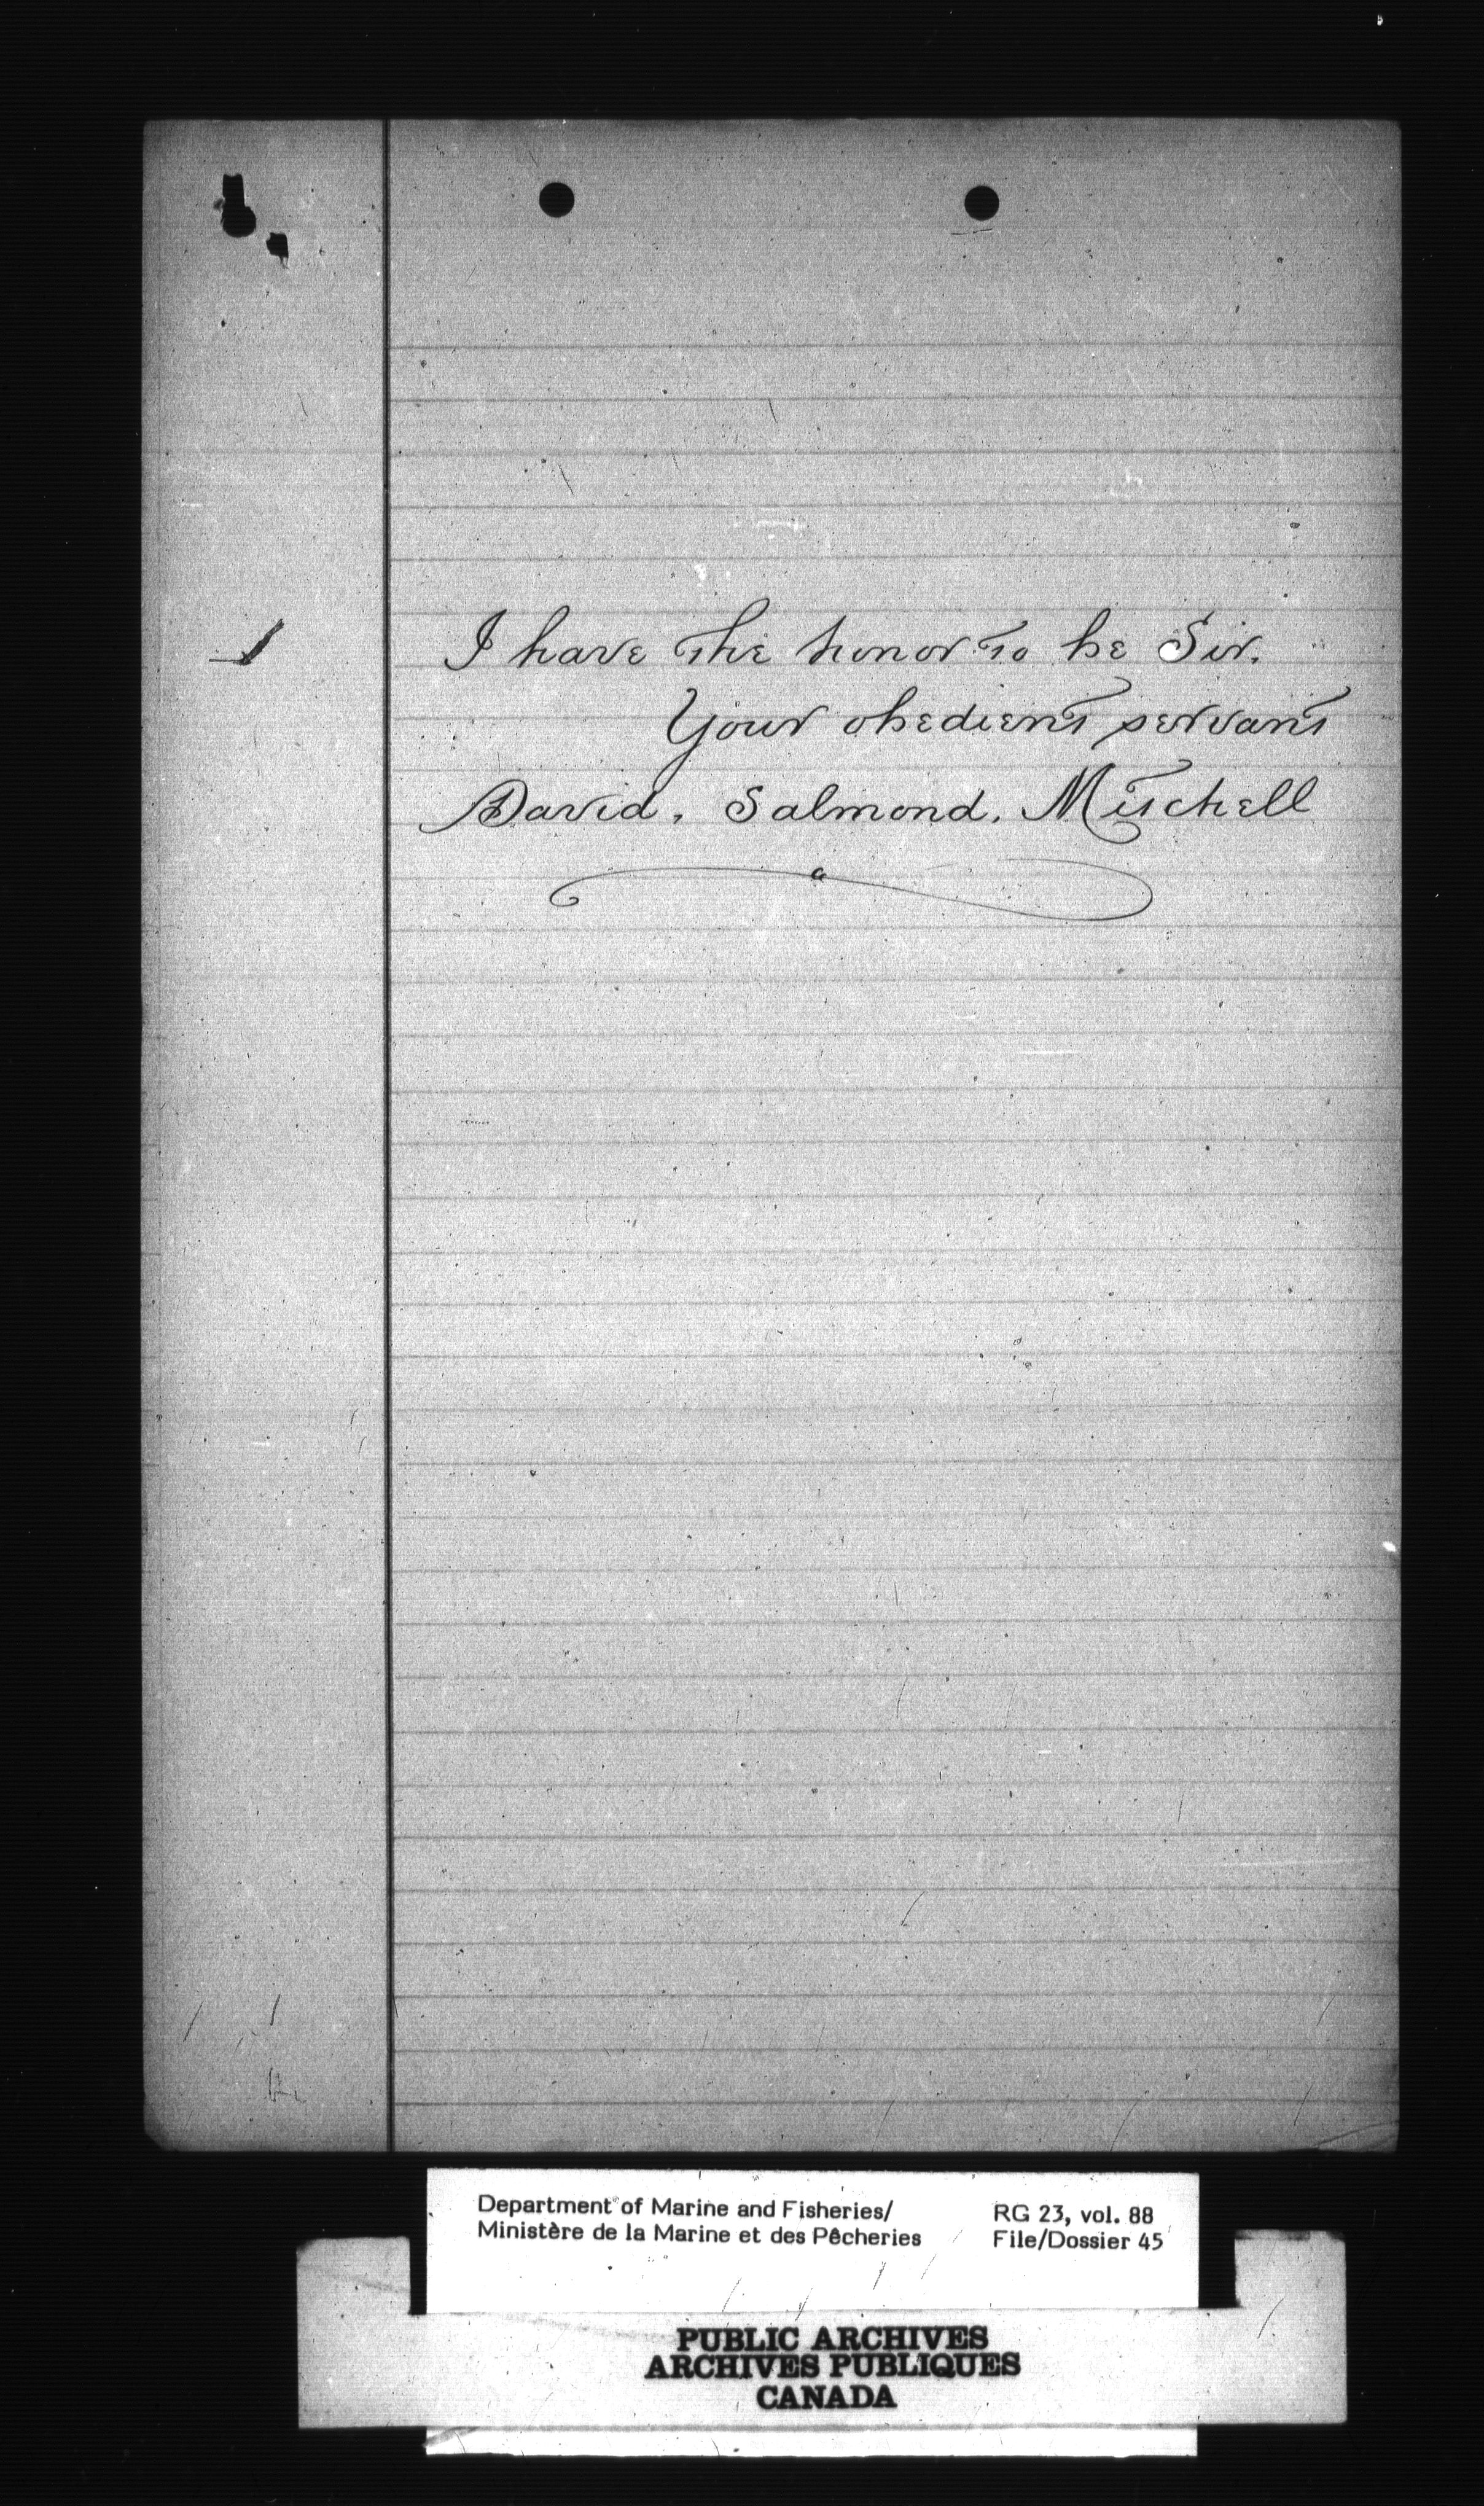 I have the honor to be Sir.
Your obedient servant
David. Salmond. Mitchell
Department of Marine and Fisheries/
Ministère de la Marine et des Pêcheries
RG 23, vol. 88
File/Dossier 45
PUBLIC ARCHIVES
ARCHIVES PUBLIQUES
CANADA